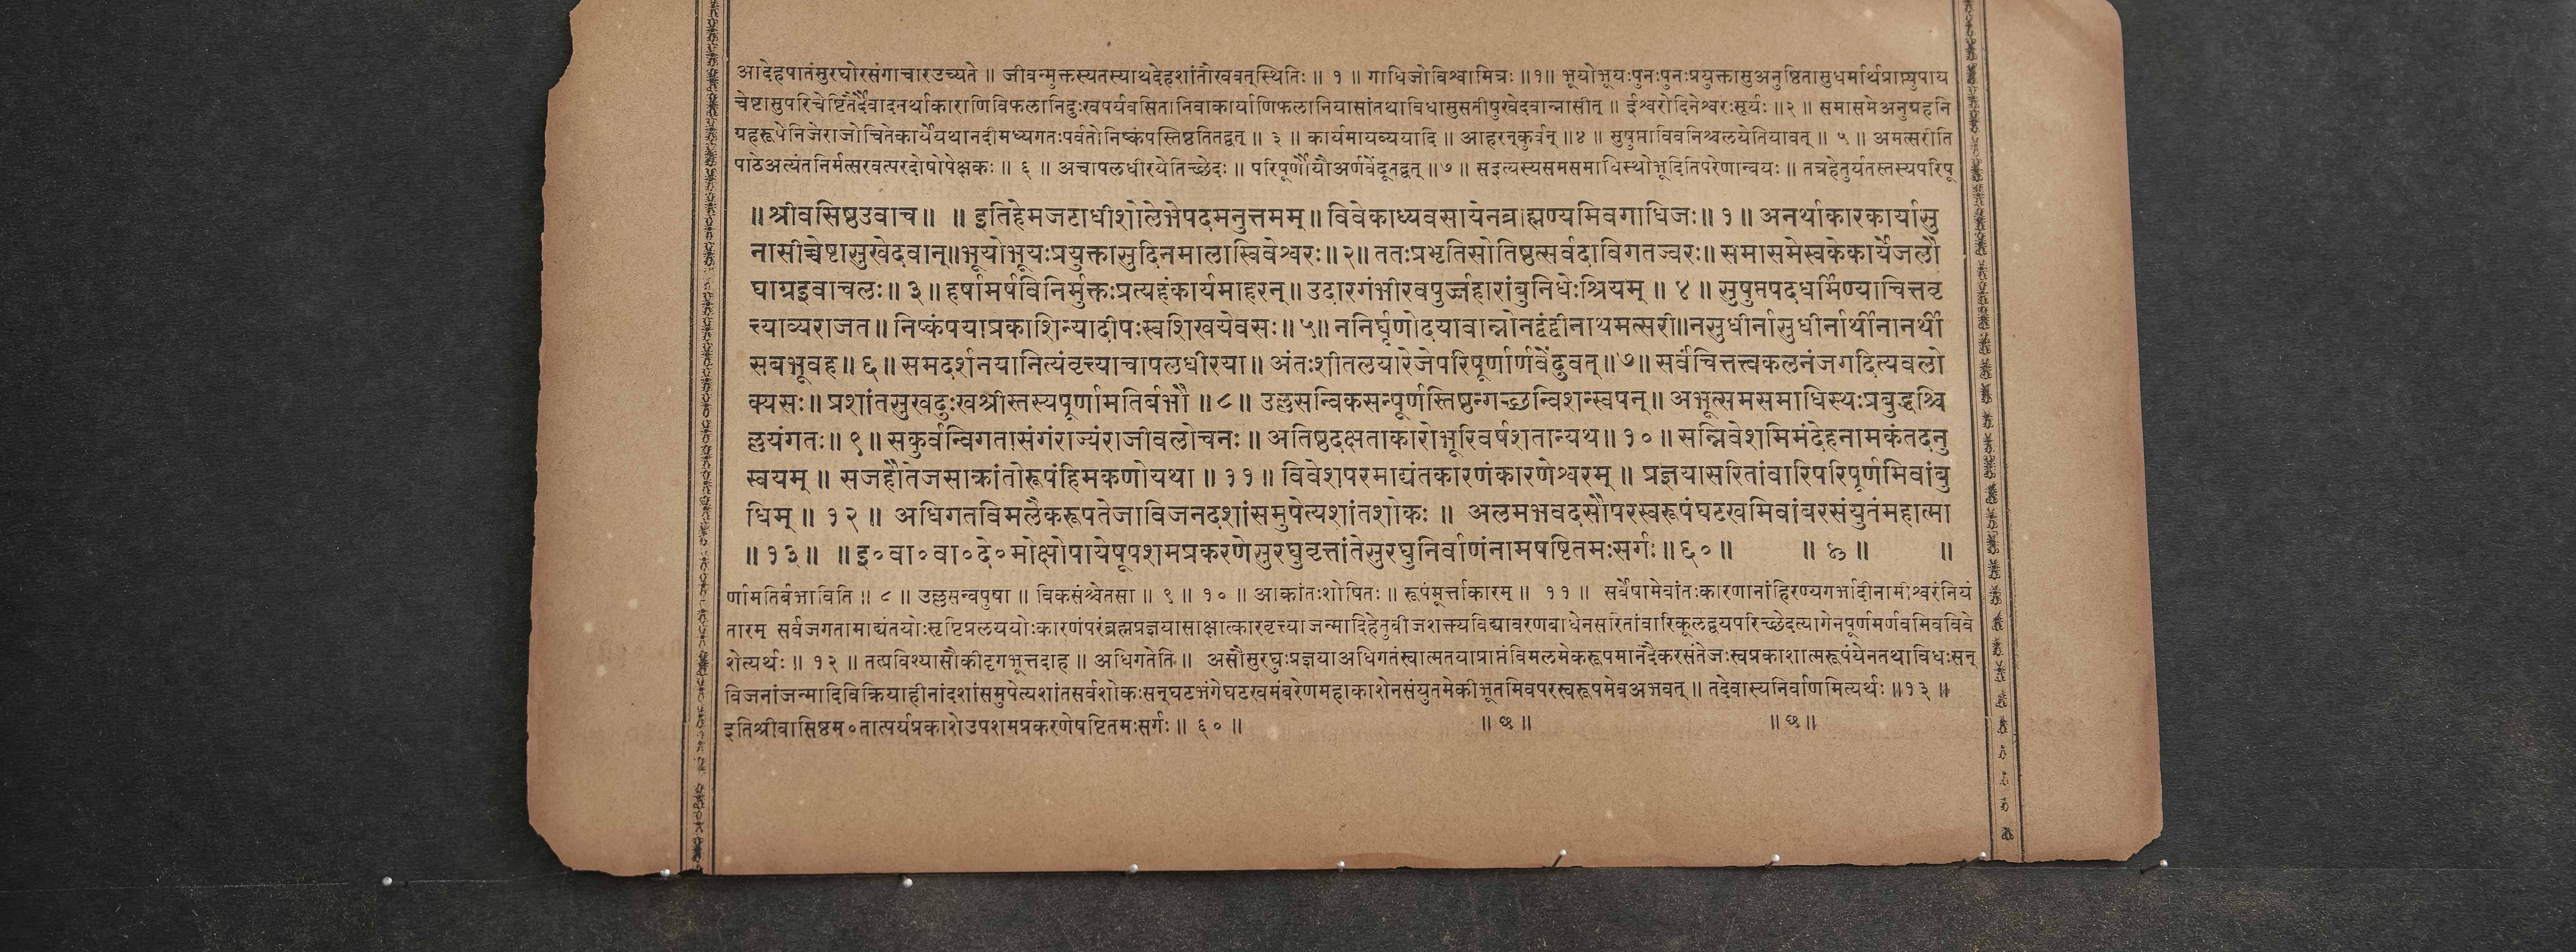 आदेहपातंसुरघोरसंगाचारउच्यते ॥ जीवन्मुक्तस्यतस्याथदेहशांतौखवत्स्थितिः ॥ १ ॥ गाधिजोविश्वामित्रः ॥१॥ भूयोभूयःपुनःपुनःप्रयुक्तासुअनुष्ठितासुधर्मार्थप्राप्त्युपाय
चेष्टासुपरिचेष्टितैर्दैवादनर्थाकाराणिविफलानिदुःखपर्यवसितानिवाकार्याणिफलानियासांतथाविधासुसतीषुखेदवान्नासीत् ॥ ईश्वरोदिनेश्वरःसूर्यः ॥२॥ समासमेअनुग्रहनि
ग्रहरूपेनिजेराजोचितेकार्येयथानदीमध्यगतःपर्वतोनिष्कंपस्तिष्ठतितद्वत् ॥ ३ ॥ कार्यमायव्ययादि ॥ आहरन्कुर्वन् ॥४॥ सुषुप्ताविवनिश्चलयेतियावत् ॥ ५ ॥ अमत्सरीति
पाठेअत्यंतनिर्मत्सरवत्परदोषोपेक्षकः ॥ ६ ॥ अचापलधीरयेतिच्छेदः ॥ परिपूर्णोयौअर्णवेंदूतद्वत् ॥७॥ सइत्यस्यसमसमाधिस्थोभूदितिपरेणान्वयः ॥ तत्रहेतुर्यतस्तस्यपरिपू
॥ श्रीवसिष्ठउवाच ॥ ॥ इतिहेमजटाधीशोलेभेपदमनुत्तमम् ॥ विवेकाध्यवसायेनब्राह्मण्यमिवगाधिजः ॥ १ ॥ अनर्थाकारकार्यासु
नासीच्चेष्टासुखेदवान् ॥ भूयोभूयःप्रयुक्तासुदिनमालास्विवेश्वरः ॥ २॥ ततःप्रभृतिसोतिष्ठत्सर्वदाविगतज्वरः ॥ समासमेस्वकेकार्येजलौ
घाग्रइवाचलः ॥ ३ ॥ हर्षामर्षविनिर्मुक्तःप्रत्यहंकार्यमाहरन् ॥ उदारगंभीरवपुर्ज्जहारांबुनिधेःश्रियम् ॥ ४ ॥ सुषुप्तपदधर्मिण्याचित्तवृ
त्त्याव्यराजत ॥ निष्कंपयाप्रकाशिन्यादीपःस्वशिखयेवसः ॥ ५॥ ननिर्घृणोदयावान्नोनद्वंद्वीनाथमत्सरी ॥ नसुधीर्नासुधीर्नार्थीनानर्थी
सबभूवह ॥ ६ ॥ समदर्शनयानित्यंवृत्त्याचापलधीरया ॥ अंतःशीतलयारेजेपरिपूर्णार्णवेंदुवत् ॥ ७॥ सर्वंचित्तत्त्वकलनंजगदित्यवलो
क्यसः ॥ प्रशांतसुखदुःखश्रीस्तस्यपूर्णामतिर्बभौ ॥ ८॥ उल्लसन्विकसन्पूर्णस्तिष्ठन्गच्छन्विशन्स्वपन् ॥ अभूत्समसमाधिस्थःप्रबुद्धश्चि
ल्लयंगतः ॥ ९ ॥ सकुर्वन्विगतासंगंराज्यंराजीवलोचनः ॥ अतिष्ठदक्षताकारोभूरिवर्षशतान्यथ ॥ १० ॥ सन्निवेशमिमंदेहनामकंतदनु
स्वयम् ॥ सजहौतेजसाक्रांतोरूपंहिमकणोयथा ॥ ११ ॥ विवेशपरमाद्यंतकारणंकारणेश्वरम् ॥ प्रज्ञयासरितांवारिपरिपूर्णमिवांबु
धिम् ॥ १२ ॥ अधिगतविमलैकरूपतेजाविजनदशांसमुपेत्यशांतशोकः ॥ अलमभवदसौपरस्वरूपंघटखमिवांबरसंयुतंमहात्मा
॥ १३ ॥ ॥ इ॰वा॰वा॰दे॰मोक्षोपायेषूपशमप्रकरणेसुरघुवृत्तांतेसुरघुनिर्वाणंनामषष्टितमःसर्गः ॥ ६० ॥ ॥ ॥ ॥
र्णामतिर्बभाविति ॥ ८ ॥ उल्लसन्वपुषा ॥ विकसंश्चेतसा ॥ ९ ॥ १० ॥ आक्रांतःशोषितः ॥ रूपंमूर्त्ताकारम् ॥ ११ ॥ सर्वेषामेवांतःकारणानांहिरण्यगर्भादीनामीश्वरंनियं
तारम् सर्वजगतामाद्यंतयोःसृष्टिप्रलययोःकारणंपरंब्रह्मप्रज्ञयासाक्षात्कारवृत्त्याजन्मादिहेतुबीजशक्त्यविद्यावरणबाधेनसरितांवारिकूलद्वयपरिच्छेदत्यागेनपूर्णमर्णवमिवविवे
शेत्यर्थः ॥ १२ ॥ तत्प्रविश्यासौकीदृगभूत्तदाह ॥ अधिगतेति ॥ असौसुरघुःप्रज्ञयाअधिगतंस्वात्मतयाप्राप्तंविमलमेकरूपमानंदैकरसंतेजःस्वप्रकाशात्मरूपंयेनतथाविधःसन्
विजनांजन्मादिविक्रियाहीनांदशांसमुपेत्यशांतसर्वशोकःसन्घटभंगेघटखमंबरेणमहाकाशेनसंयुतमेकीभूतमिवपरस्वरूपमेवअभवत् ॥ तदेवास्यनिर्वाणमित्यर्थः ॥१३ ॥
इतिश्रीवासिष्ठम॰तात्पर्यप्रकाशेउपशमप्रकरणेषष्टितमःसर्गः ॥ ६० ॥ ॥ छ ॥ ॥ छ ॥